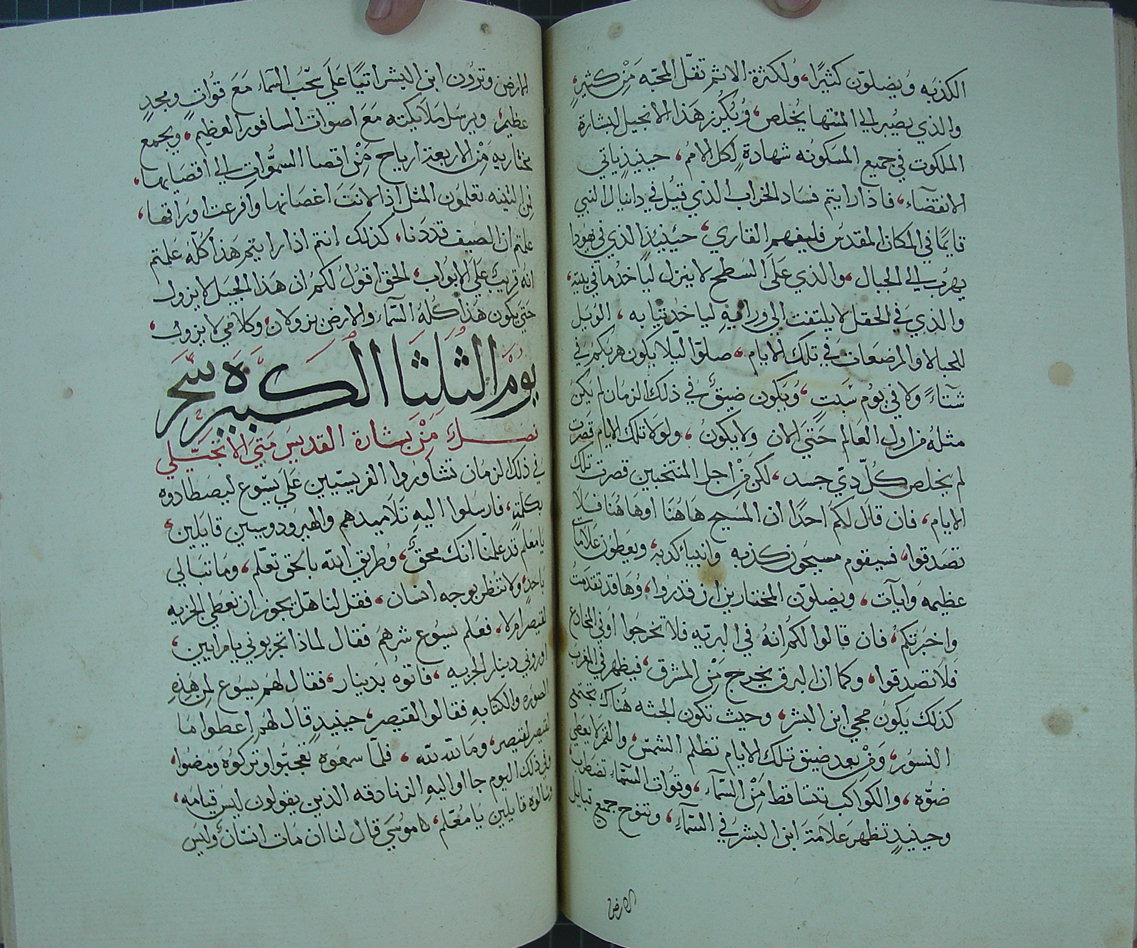 الكذبه ويضلون كثيرًا، ولكثرة الاثم تقل المحبه مَنْ كثيرٍ
والذي يصبر الي المنتها يُخلص، ويُكرز هَذا الانجيل ببشارة
الملكوت في جميع المسكونه شهادة لكل الامم، حينيذٍ ياتي
الانقضآء، فاذا رايتم فساد الخراب الذي قيل في دانيال النبي
قايمًا في المكان المقدس فليفهم القاري، حينيذٍ الذي في يهودا
يهرب الي الجبال، والذي علي السطح لا ينزل لياخد ما في بيته،
والذي في الحقل لا يلتفت الي ورائه لياخد ثيابه، الويل
للحبالا والمرضعات في تلك الايام، صلوا ليلا يكون هربكم في
شتآءً ولا في يوم سَبتٍ، ويكون ضيقٌ في ذلك الزمان لم يكن
مثله مِن اول العالم حتي الان ولا يكون، ولولا تلك الايام قصرت
لم يخلص كل ذي جسد، لكن مِن اجل المنتخبين قصرت تلك
الايام، فان قال لكم احدًا ان المسيح هاهنا او هاهنا فلا
تصدقوا، فسيقوم مسيحون كذبه وانبياء كذبه، ويعطون علامات
عظيمه وايآت، ويضلون المختارين ان قدروا، وها قد تقدمت
واخبرتكم، فان قالوا لكم انهُ في البريه فلا تخرجوا او في المخادع
فلا تصدقوا، وكما ان البرق يخرج مِن المشرق، فيظهر في المغرب
كذلك يكون مجي ابن البشر، وحيث تكون الجثه هناك تجتمع
النسور، ومِن بعد ضيق تلك الايام تظلم الشمس، والقمر لا يعطي
ضوّه، والكواكب تتساقط مِن السمآء، وقوات السمآء تضطرب،
وحينيذٍ تظهر علامة ابن البشر في السمآء، وتنوح جميع قبايل
الارض
الارض وترون ابن البشر اتيًا علي سحب السمآء مَعَ قواتٍ ومجدٍ
عظيم، ويرسل ملائكته مَعَ اصوات السافور العظيم، ويجمع
مختاريه مِن الاربعة ارياح مِن اقصا السموات الي اقصايها،
فمن التينه تعلمون المثل اذا لانت اغصانها وافرعت اوراقها،
علمتم ان الصيف قد دنا، كذلك انتم اذا رايتم هذا كله علمتم
انه قريب علي الابواب، الحق اقول لكم ان هذا الجيل لا يزول
حتي يكون هذا كله السمآء والارض يزولان، وكلامي لا يزول،
يوم الثلثا الكبيره سَحَر
فصل مَنْ بشارة القديس متي الانجيلي
في ذلك الزمان تشاوروا الفريسيين علي يسوع ليصطادوه
بكلمةٍ، فارسلوا اليه تلاميدهم والهيرودوسيين قايلين،
يا معلم قد علمنا انك محقٌ، وطريق الله بالحق تعلم، وما تبالي
باحدٍ، ولا تنظر بوجه انسان، فقل لنا هل يجوز ان نعطي الجزيه
لقيصر ام لا، فعلم يسوع شرهم فقال لماذا تجربوني يا مرايين،
اوروني دينار الجزيه، فاتوه بدينار، فقال لهم يسوع لِمن هذهِ
الصوره والكتابه فقالوا لقيصر، حينيذٍ قال لهم اعطوا ما
لقيصر لقيصر، وما لله لله، فلما سمعوه تعجبوا وتركوه ومضوا،
وفي ذلك اليوم جاوا اليه الزنادقه الذين يقولون ليس قيامه،
وسالوه قايلين يا معلم، ان موسي قال لنا ان مات انسانٌ وليس